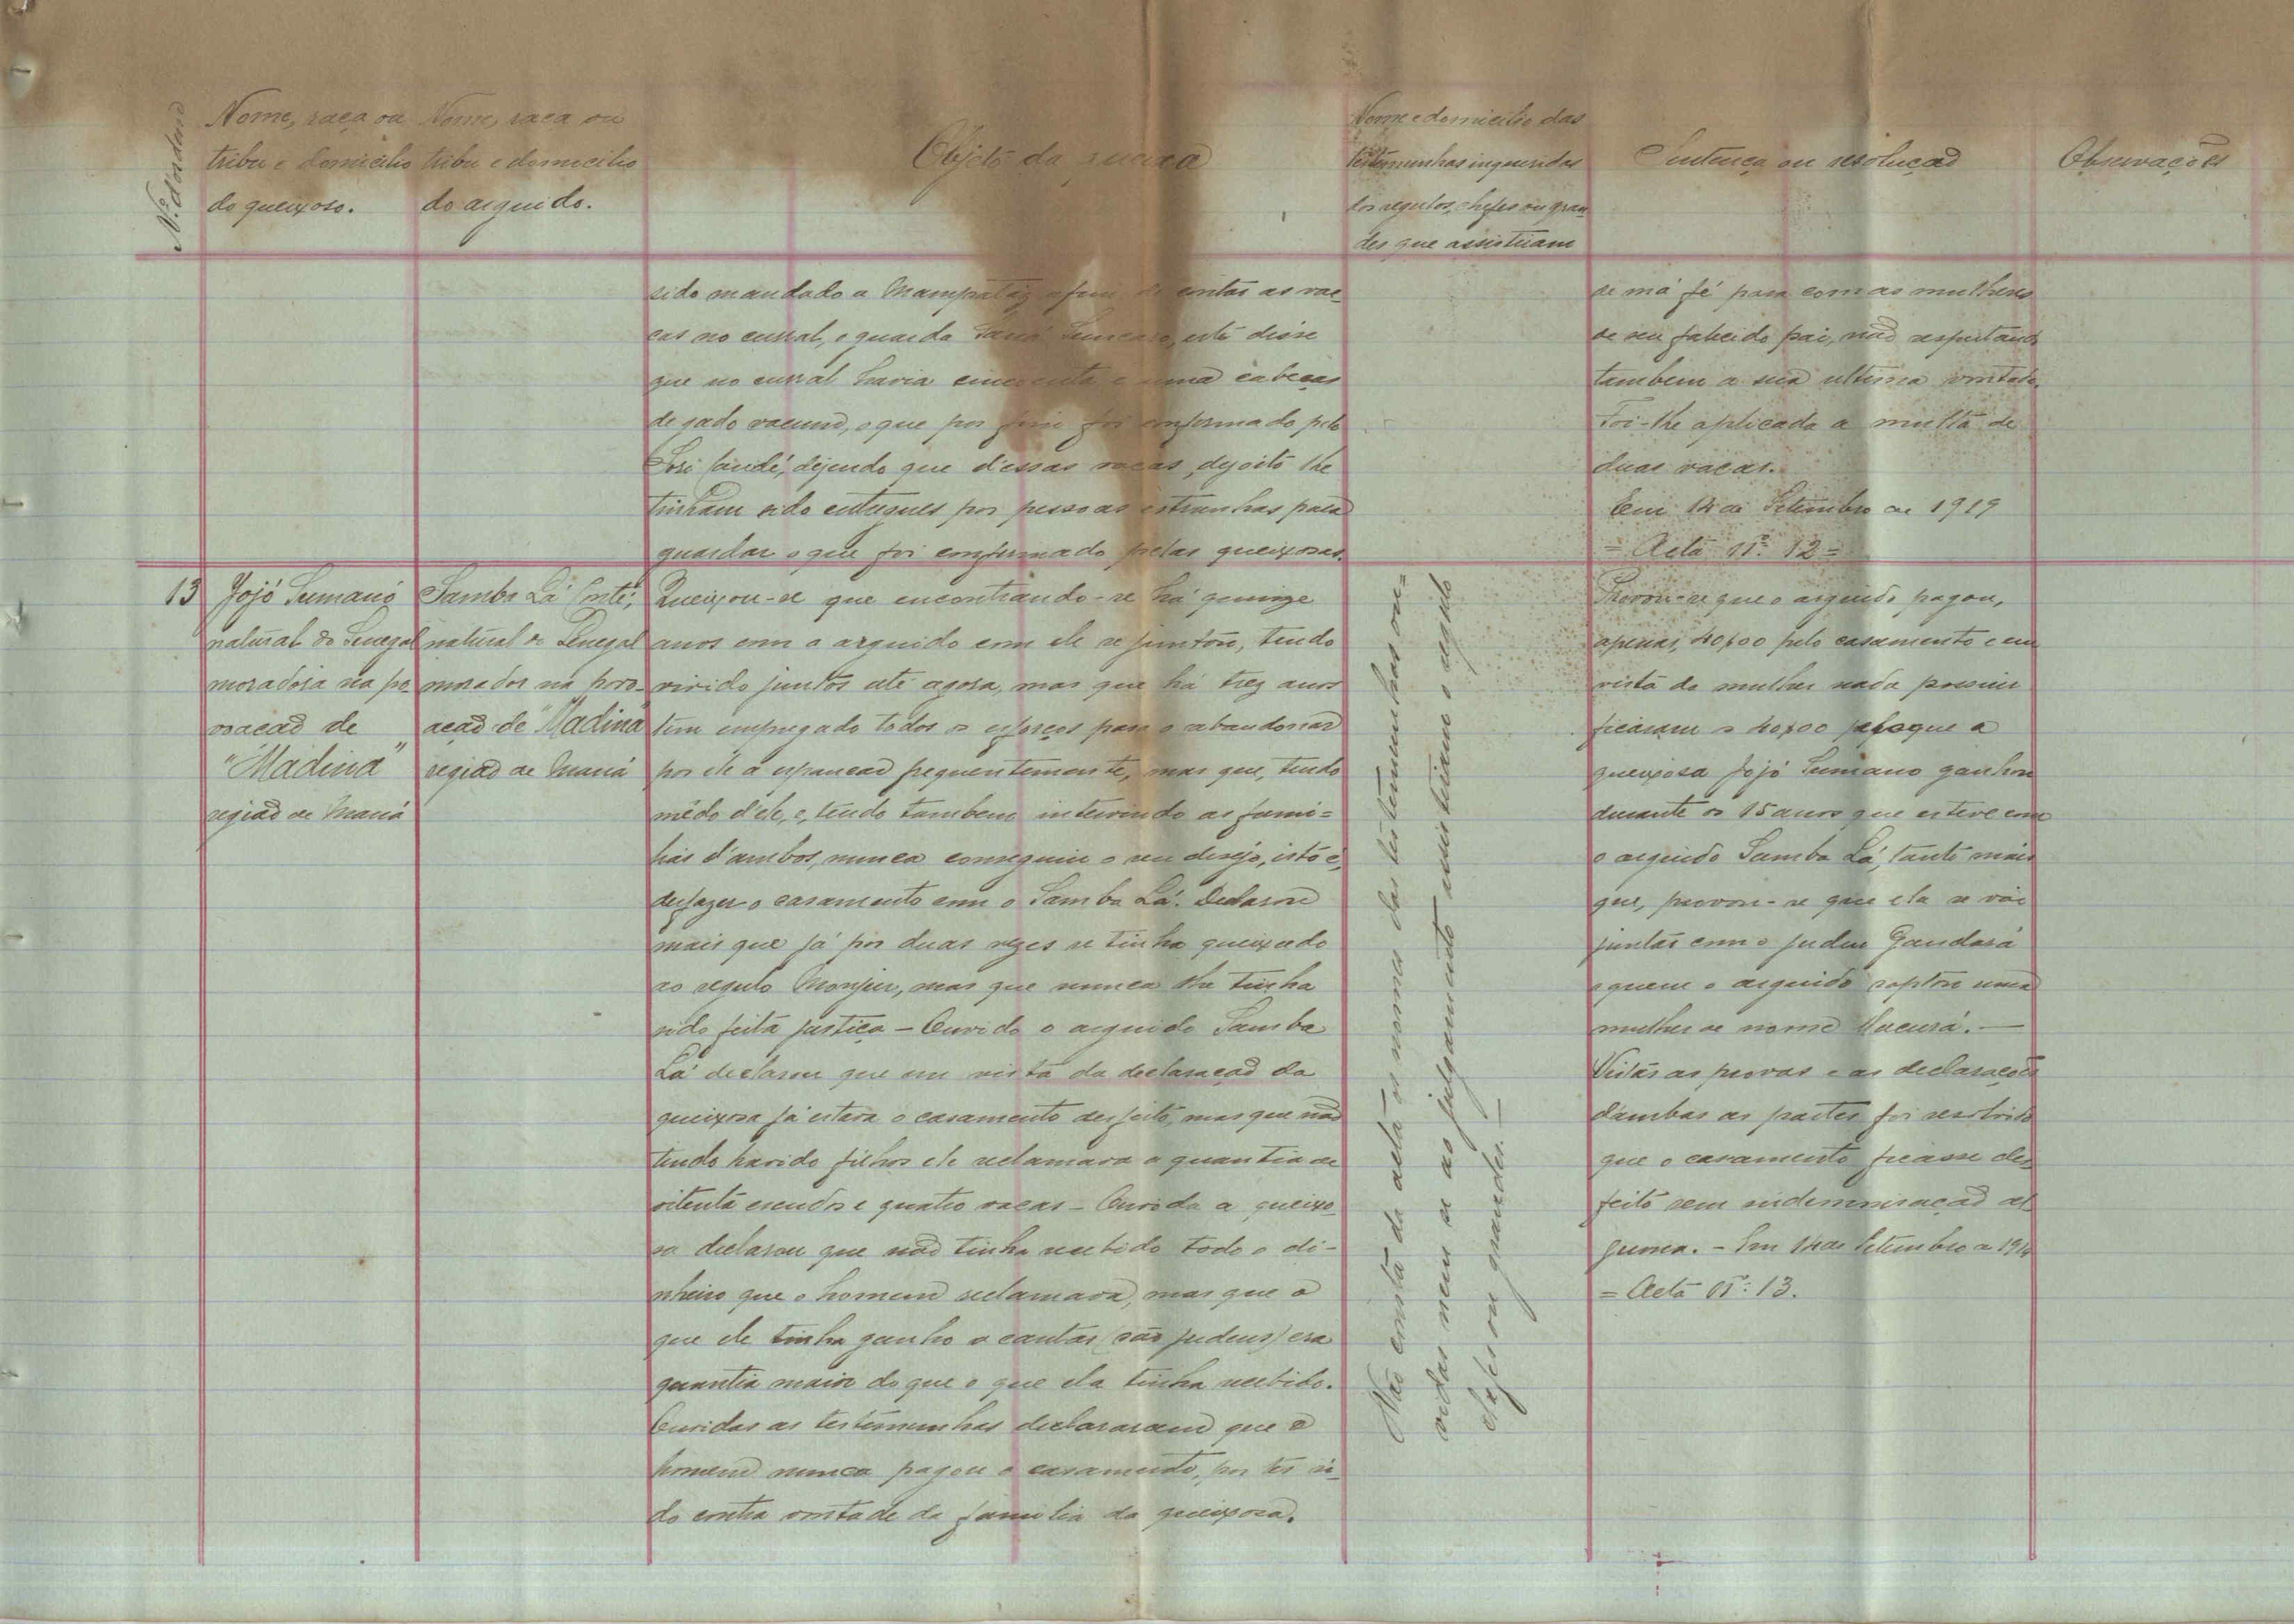 Nº d'ordem
Nome, raça ou
tribu e domicilio
do queixoso.
Nome, raça ou
tribu e domicilio
do arguido.
Objéto da queixa
Nome e domicilio das
testemunhas inqueridas
dos regulos, chefes ou gran
des que assistiram
Sentença ou resolução
Observações
sido mandado a afim de contar as vac
cas no curral, o guarda este disse
que no curral havia cincoenta e uma cabeças
de gado vacum, o que por fim foi confirmado pelo
dizendo que d'essas vacas, dezoito lhe
tinham sido entregues por pessoas estranhas para
guardar o que foi confirmado pelas queixosas.
de má fé para com as mulheres
de seu falecido pai, não respeitando
tambem a sua ultima vontade.
Foi-lhe aplicada a multa de
duas vacas.
Em 14 de Setembro de 1919
= Acta nº 12 =
13
Jojó Sumano
natural do Senegal
moradora na po
voacão de
"Madina"
região de Maná
Samba Lá Conté,
natural do Senegal
morador na povo-
ação de "Madina"
região de Maná
Queixou-se que encontrando-se há quinze
anos com o arguido com ele se juntou, tendo
vivido juntos até agora, mas que há trez anos
tem empregado todos os esforços para o abandonar
por ele a espancar frequentemente, mas que, tendo
mêdo d'ele, e, tendo tambem intervindo as fami=
lias d'ambos, nunca conseguiu o seu desejo, isto é,
desfazer o casamento com o Samba Lá. Declarou
mais que já por duas vezes se tinha queixado
ao regulo Monjur, mas que nunca lhe tinha
sido feita justiça - Ouvido o arguido Samba
Lá declarou que em vista da declaração da
queixosa já estava o casamento desfeito, mas que não
tendo havido filhos ele reclamava a quantia de
oitenta escudos e quatro vacas - Ouvida a queixo
sa declarou que não tinha recebido todo o di-
nheiro que o homem reclamava, mas que o
que ele tinha ganho a cantar (são judeus) era
quantia maior do que o que ela tinha recebido.
Ouvidas as testemunhas declararam que o
homem nunca pagou o casamento, por ter si-
do contra vontade da familia da queixosa.
Não consta da acta os nomes das testemunhas ou=
vidas nem se ao julgamento assistiram o regulo
chefes ou grandes. —
Provou-se que o arguido pagou,
apenas, 40$00 pelo casamento e em
vista da mulher nada possuir
ficaram os 40$00 pelo que a
queixosa Jojó Sumano ganhou
durante os 15 anos que esteve com
o arguido Samba Lá, tanto mais
que, provou-se que ela se vai
juntar com o judeu Gandará
a quem o arguido raptou uma
mulher de nome Macurá. —
Vistas as provas e as declarações
d'ambas as partes foi resolvido
que o casamento ficasse des
feito sem indemnisação al
guma. - Em 14 de Setembro de 1919
= Acta nº: 13.